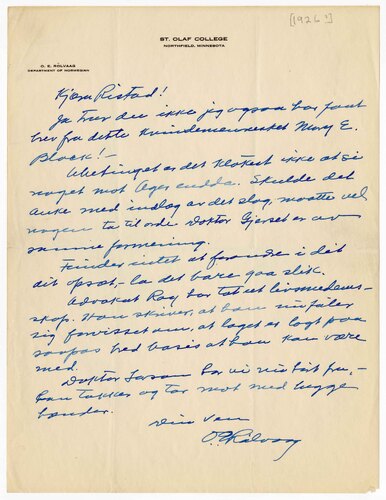 [1926?]
ST. OLAF COLLEGE
NORTHFIELD, MINNESOTA
O. E. ROLVAAG
DEPARTMENT OF NORWEGIAN
Kjære Ristad!
Ja tror du ikke jeg ogsaa har faat
brev fra dette kvindemennesket Mary E.
Black! —
Ubetinget er det klokest ikke at si
noget mot Ager endda. Skulde det
auke med indlæg av det slag, maatte vel
nogen ta til orde. Doktor Gjerset er av
samme formening.
Finder intet at forandre i det
dit opsat, — la det bare gaa slik.
Advokat Ray har tat ut livsmedlems-
skap. Han skriver, at han nu føler
sig forvisset om, at laget er lagt paa
saapas bred basis at han kan være
med.
Doktor Larson har vi nu hørt fra, —
han takker og tar mot med begge
hænder.
Din ven
O E Rølvaag